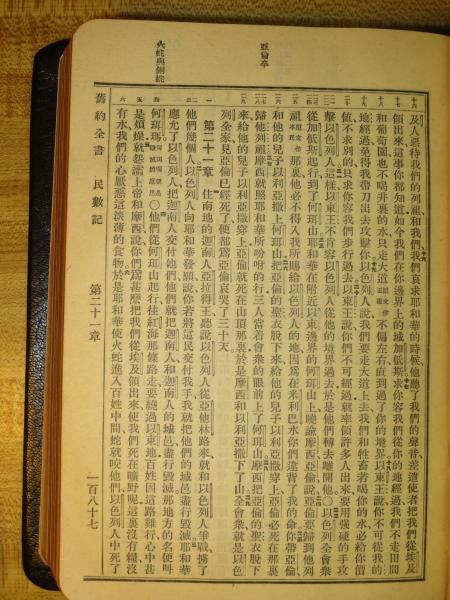 亞倫卒
火蛇與銅蛇
及人惡待我們的列祖和我們我們哀求耶和華的時候他聽了我們的聲音差遣使者把我們從埃及
領出來這事你都知道如今我們在你邊界上的城加低斯求你容我們從你的地經過我們不走田間
和葡萄園也不喝井裏的水只走大道不偏左右直到過了你的境界以東王說你不可從我的
地經過免得我帶刀出去攻擊你以色列人說我們要走大道上去我們和牲畜若喝你的水必給你價
值不求別的只求你容我們步行過去以東王說你們不可經過就率領許多人出來要用强硬的手攻
擊以色列人這樣以東王不肯容以色列人從他的境界過去於是他們轉去離開他○以色列全會衆
從加低斯起行到了何珥山耶和華在附近以東邊界的何珥山上曉諭摩西亞倫說亞倫要歸到他列
祖原文作本民那裏他必不得入我所賜給以色列人的地因爲在米利巴水你們違背了我的命你帶亞倫
和他的兒子以利亞撒上何珥山把亞倫的聖衣脫下來給他的兒子以利亞撒穿上亞倫必死在那裏
歸他列祖摩西就照耶和華所吩咐的行三人當着會衆的眼前上了何珥山摩西把亞倫的聖衣脫下
來給他的兒子以利亞撒穿上亞倫就死在山頂那裏於是摩西和以利亞撒下了山全會衆就是以色
列全家見亞倫已經死了便都爲亞倫哀哭了三十天
第二十一章 住南地的迦南人亞拉得王聽說以色列人從亞他林路來就和以色列人爭戰擄了
他們幾個人以色列人向耶和華發願說你若將這民交付我手我就把他們的城邑盡行毀滅耶和華
應允了以色列人把迦南人交付他們他們就把迦南人和迦南人的城邑盡行毀滅那地方的名便叫
何珥瑪何珥瑪就是毀滅的意思○他們從何珥山起行往紅海那條路走要繞過以東地百姓因這路難行心中甚
是煩燥就怨讟上帝和摩西說你們爲甚麽把我們從埃及領出來使我們死在曠野呢這裏沒有糧沒
有水我們的心厭惡這淡薄的食物於是耶和華使火蛇進入百姓中間蛇就咬他們以色列人中死了
舊約全書 民數記 第二十一章 一百八十七